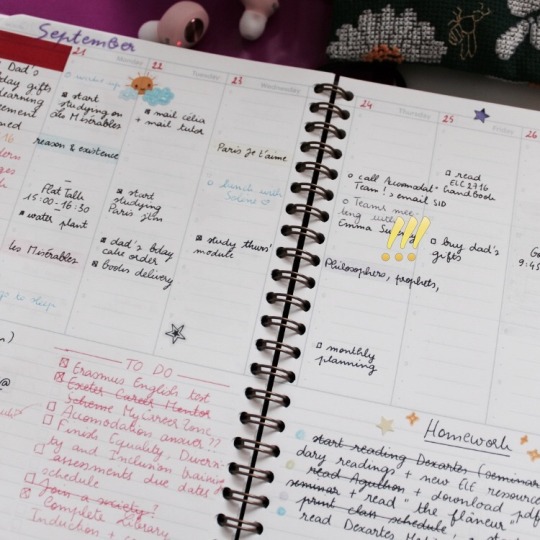 September
Dad's
day gifts
learning
21
Monday
wake up
start
studying on
les Misérables
reason & existence
Flat Talk
15:00-16:30
water plant
les Misérables
go to sleep
22
Tuesday
mail célia
+ mail tutor
start
studying
Paris jtm
dad's bday
cake order
books delivery
23
Wednesday
Paris je t'aime
lunch with
study thurs'
module
24
Thursday
call Accomodat.
Team! > email SID
Teams mee-
ting with
Emma
!!!
Philosophers, prophets,
monthly
planning
25
Friday
read
ELC2716
handbook
buy dad's
gifts
26
9:45
TO DO
Erasmus English test
Exeter Career Mentor
Scheme My Career Zone
Accomodation answer??
Finish Equality, Diversi-
ty and Inclusion training
assessments due dates
schedule
Join a society?
Complete Library
Induction +
Homework
start reading Dexartes (seminar
dary readings + new ELE resource
read Aquthon + download pdf
seminar + read "the flâneur"
print class schedule!
read Dexartes